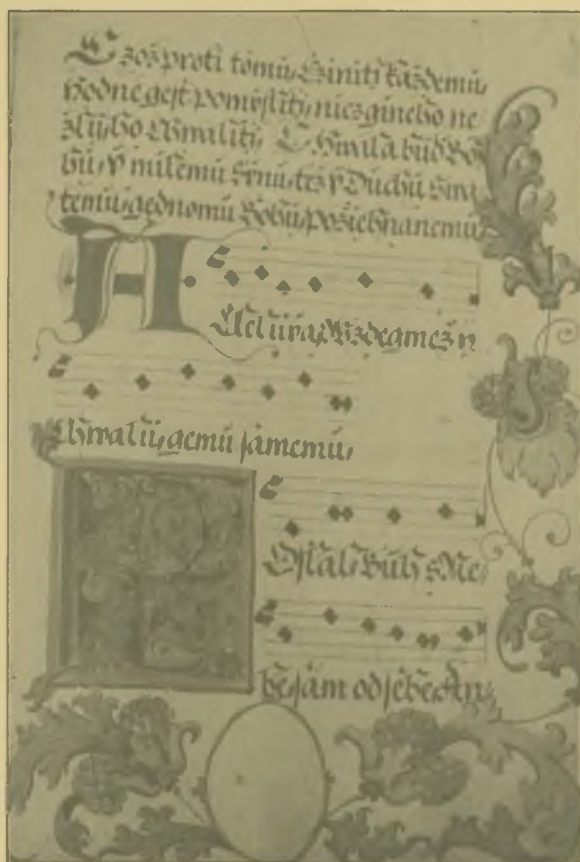 Czož proti tomu, Cžiniti každemu,
Hodne gest pomysliti, nicžgineho ne
žliiho Chwaliti, Chwala bud Bo
hu, y milemu Sinu, tež y Duchu Swa
temu, gednomu Bohu, požiehnanemu
Lleluia, Wzdeamež y
Chwalu, gemu samemu,
Oslal Buh s Ne
be, sam od sebe, An,